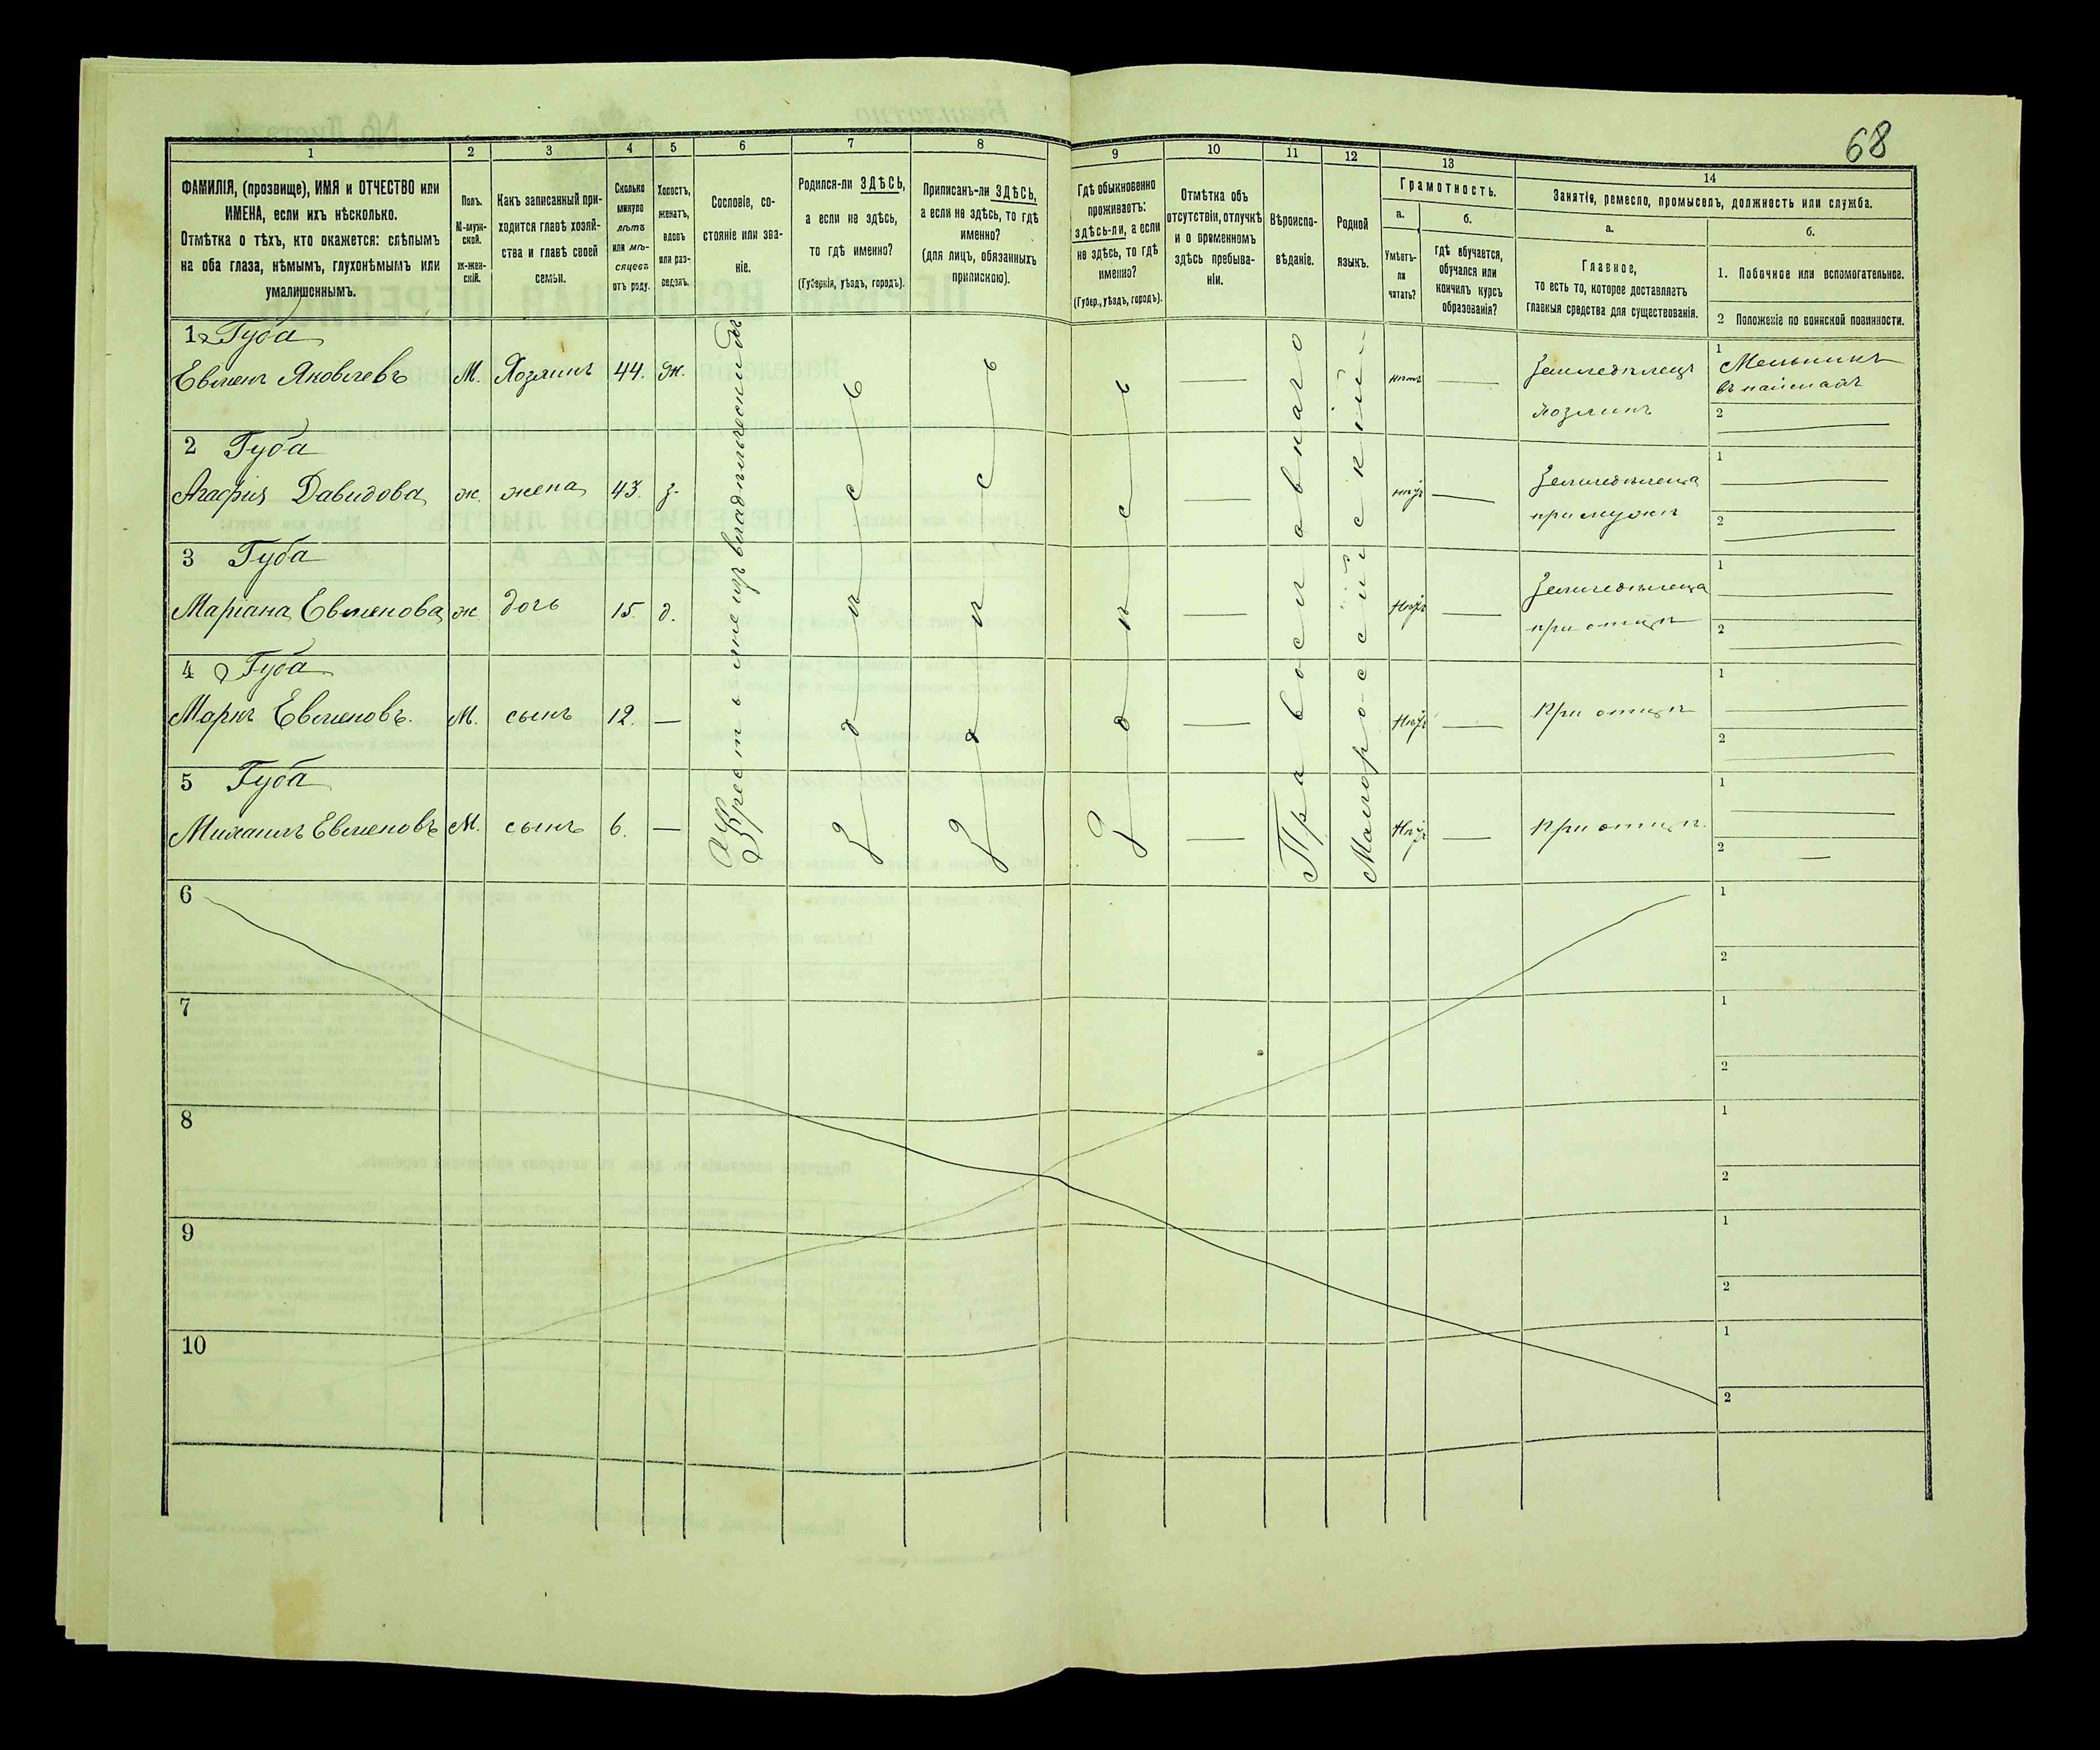 68
1 2 3 4 5 6 7 8 9 10 11 12 13 14
ФАМИЛІЯ, (прозвище), ИМЯ и ОТЧЕСТВО или
ИМЕНА, если ихъ нѣсколько.
Отмѣтка о тѣхъ, кто окажется: слѣпымъ
на оба глаза, нѣмымъ, глухонѣмымъ или
умалишеннымъ.
Полъ.
М-муж-
ской.
ж-жен-
скій.
Какъ записанный при-
ходится главѣ хозяй-
ства и главѣ своей
семьи.
Сколько
минуло
лѣтъ
или мѣ-
сяцевъ
отъ роду.
Холостъ,
женатъ,
вдовъ
или раз-
веденъ.
Сословіе, со-
стояніе или зва-
ніе.
Родился-ли ЗДѢСЬ,
а если не здѣсь,
то гдѣ именно?
(Губернія, уѣздъ, городъ).
Приписанъ-ли ЗДѢСЬ,
а если не здѣсь, то гдѣ
именно?
(для лицъ, обязанныхъ
припискою).
Гдѣ обыкновенно
проживаетъ:
здѣсь-ли, а если
не здѣсь, то гдѣ
именно?
(Губер., уѣздъ, городъ).
Отмѣтка объ
отсутствіи, отлучкѣ
и о временномъ
здѣсь пребыва-
ніи.
Вѣроиспо-
вѣданіе.
Родной
языкъ.
Грамотность.
а.
Умѣетъ-
ли
читать?
б.
гдѣ обучается,
обучался или
кончилъ курсъ
образованія?
Занятіе, ремесло, промыселъ, должность или служба.
а.
Главное,
то есть то, которое доставляетъ
главныя средства для существованія.
б.
1. Побочное или вспомогательное.
2 Положеніе по воинской повинности.
1 Губа
Евменъ Яковлевъ М. Хозяинъ 44. ж. — нѣтъ — Земледѣлецъ
хозяинъ
1 Мельникъ
въ наймахъ
2 —
2 Губа
Агафія Давидова ж. жена 43. з. — нѣтъ — Земледѣлица
при мужѣ
1 —
2 —
3 Губа
Маріана Евменова ж дочь 15. д. — нѣтъ — Земледѣлица
при отцѣ
1 —
2 —
4 Губа
Маркъ Евменовъ. М. сынъ 12. — — нѣтъ — При отцѣ
1 —
2 —
5 Губа
Михаилъ Евменовъ М. сынъ 6. — — нѣтъ — При отцѣ.
1 —
2 —
Крестьяне изъ владѣльческихъ
Здѣсь
Здѣсь
Здѣсь
Православнаго
Малороссійскій
6
1
2
7
1
2
8
1
2
9
1
2
10
1
2